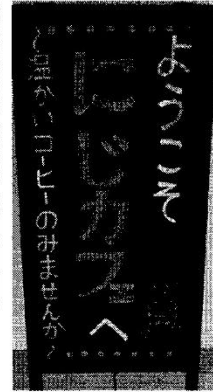 ようこそ
にじカフェへ
〜温かいコーヒーのみませんか〜